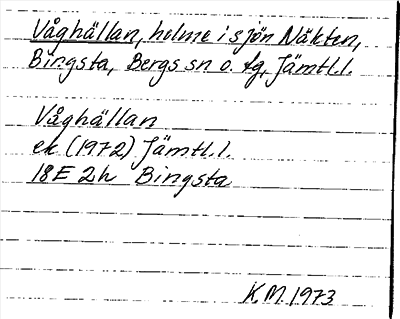 Våghällan, holme i sjön Näkten,
Bingsta, Bergs sn o. tg, Jämtl.l.
Våghällan
ek (1972) Jämtl.l.
18E 2h Bingsta
K.M. 1973